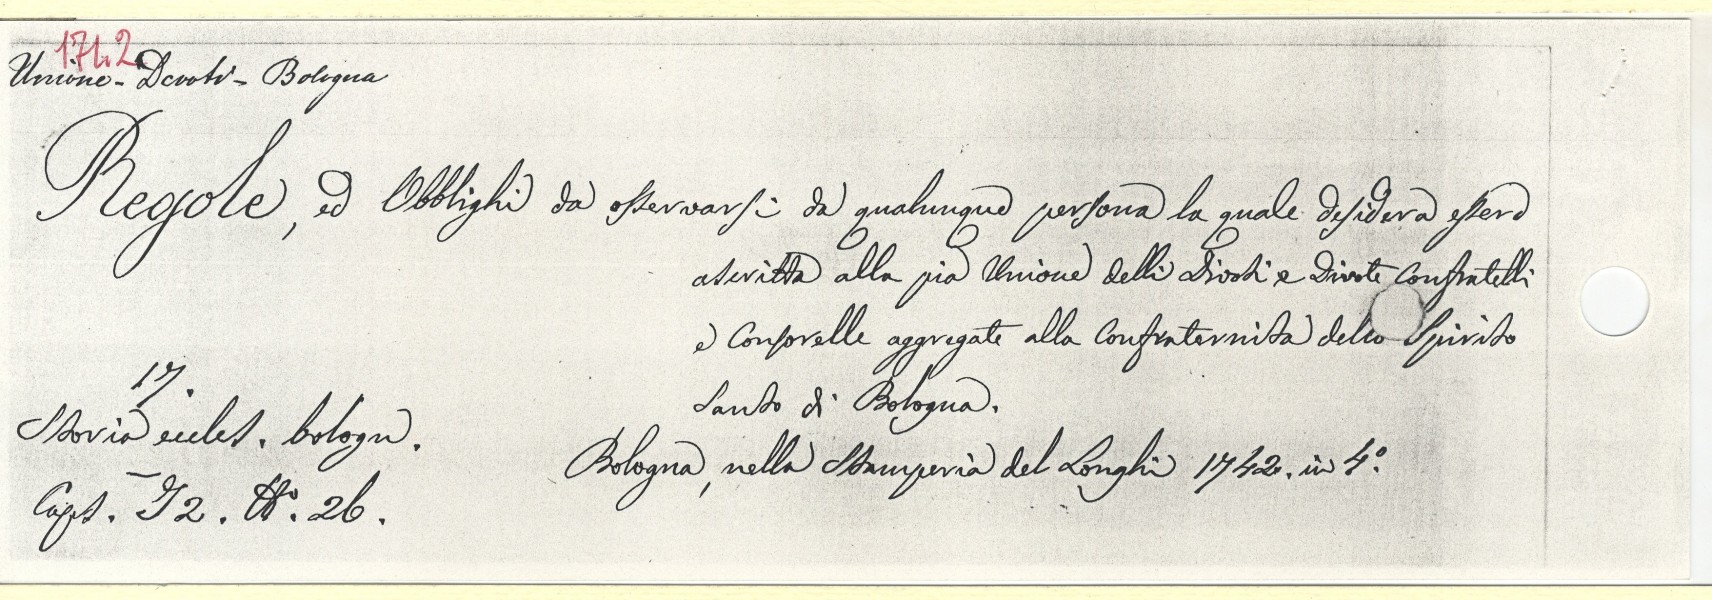 1742
Unione - Devoti - Bologna
Regole, ed Obblighi da osservarsi da qualunque persona la quale desidera essere
ascritta alla pia Unione delli Divoti e Divote Confratelli
e Consorelle aggregate alla Confraternita dello Spirito
Santo di Bologna.
Bologna, nella Stamperia del Longhi 1742. in 4°.
17.
Storia eccles. bologn.
Caps. I2. N°. 26.